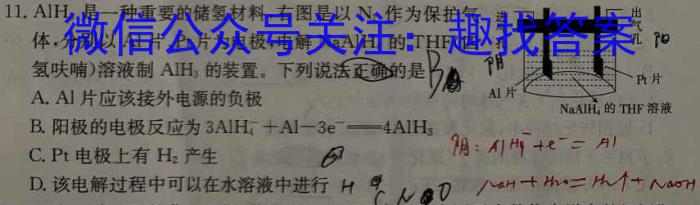 11. AlH₃是一种重要的储氢材料,右图是以 N₂ 作为保护气
体,分别以 Al 片、Pt 片为电极,电解 NaAlH₄ 的 THF(四
氢呋喃)溶液制 AlH₃ 的装置。下列说法正确的是
A. Al 片应该接外电源的负极
B. 阳极的电极反应为 3AlH₄⁻+Al−3e⁻══4AlH₃
C. Pt 电极上有 H₂ 产生
D. 该电解过程中可以在水溶液中进行
出气孔
Al 片
Pt 片
NaAlH₄ 的 THF 溶液
微信公众号关注:趣找答案